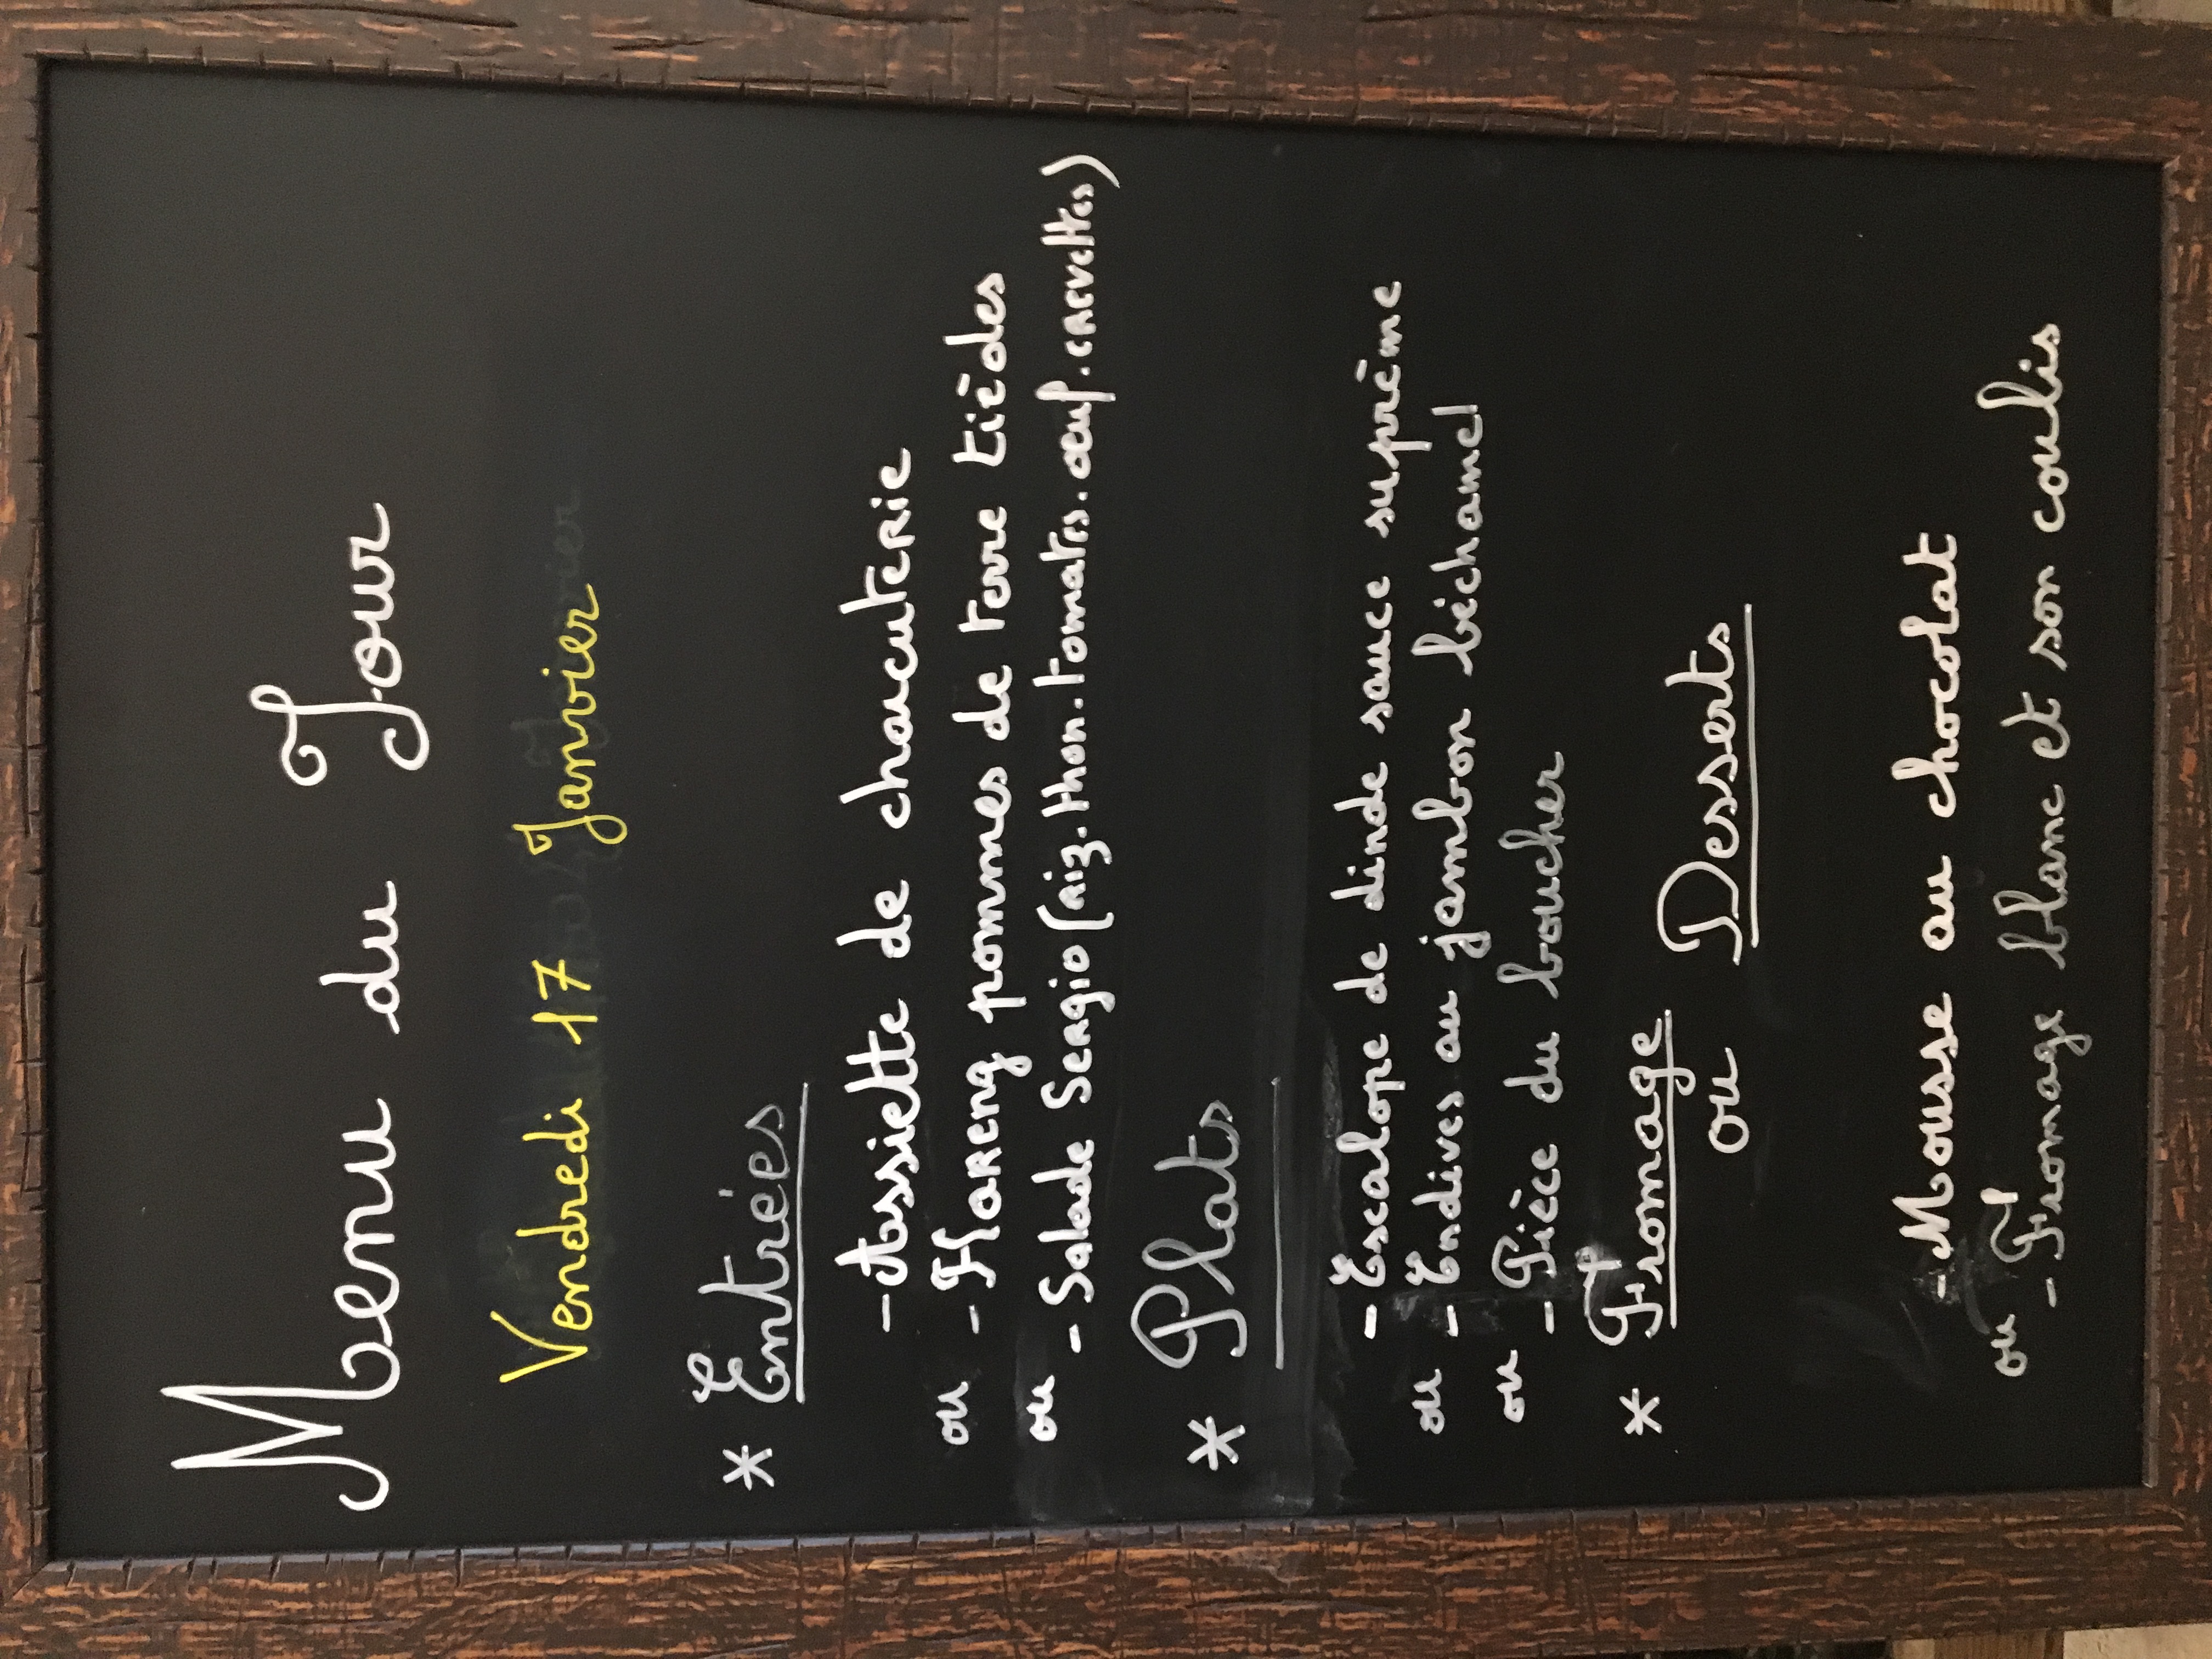 Menu du Jour
Vendredi 17 Janvier
* Entrées
- Assiette de charcuterie
ou - Hareng pommes de terre tièdes
ou - Salade Sergio (riz.thon.tomates.œuf.crevettes)
* Plats
- Escalope de dinde sauce suprème
ou - Endives au jambon béchamel
ou - Pièce du boucher
* Fromage
ou Desserts
- Mousse au chocolat
ou - Fromage blanc et son coulis